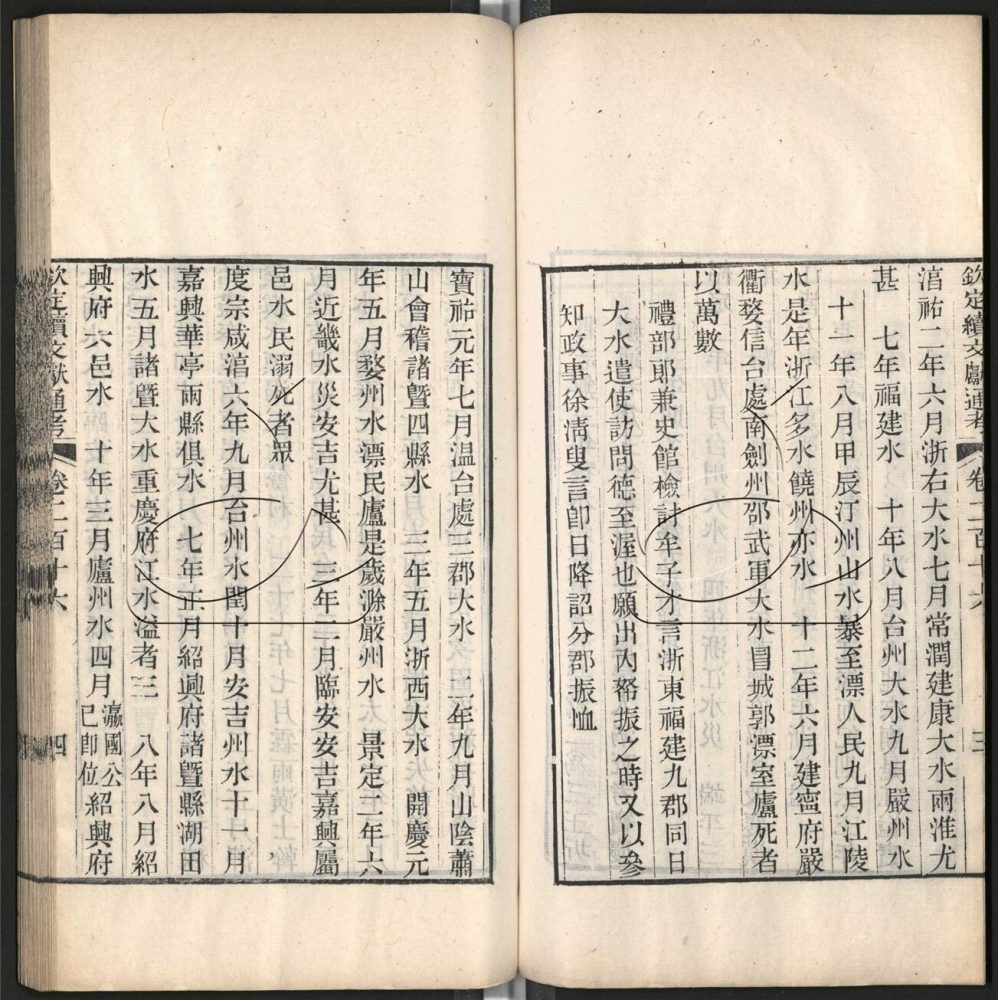 欽定續文獻通考 卷二百十六 三
淯祐二年六月浙右大水七月常潤建康大水兩淮尤
甚 七年福建水 十年八月台州大水九月嚴州水
十一年八月甲辰汀州山水暴至漂人民九月江陵
水是年浙江多水饒州亦水 十二年六月建寧府嚴
衢婺信台處南劍州邵武軍大水冒城郭漂室廬死者
以萬數
禮部郎兼史館檢討牟子才言浙東福建九郡同日
大水遣使訪問德至渥也願出內帑振之時又以參
知政事徐淸叟言卽日降詔分郡振恤
寶祐元年七月温台處三郡大水 二年九月山陰蕭
山會稽諸曁四縣水 三年五月浙西大水 開慶元
年五月婺州水漂民廬是歲滁嚴州水 景定二年六
月近畿水災安吉尤甚 三年二月臨安安吉嘉興屬
邑水民溺死者眾
度宗咸淯六年九月台州水閏十月安吉州水十一月
嘉興華亭兩縣俱水 七年正月紹興府諸曁縣湖田
水五月諸曁大水重慶府江水溢者三 八年八月紹
興府六邑水 十年三月廬州水四月瀛國公已卽位紹興府
欽定續文獻通考 卷二百十六 四